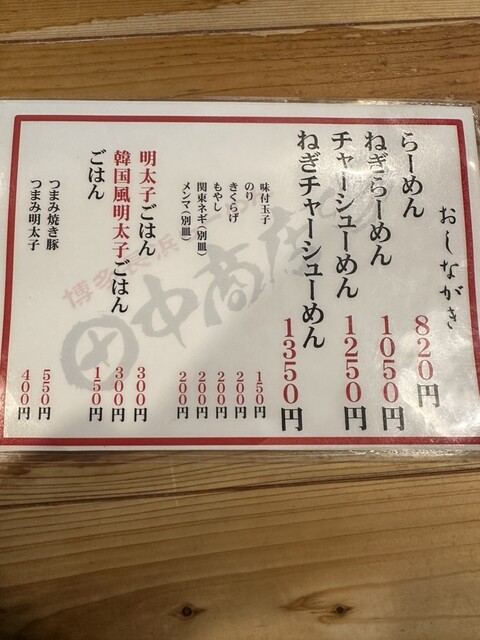 おしながき
らーめん 820円
ねぎらーめん 1050円
チャーシューめん 1250円
ねぎチャーシューめん 1350円
味付玉子 150円
のり 200円
きくらげ 200円
もやし 200円
関東ネギ(別皿) 200円
メンマ(別皿) 200円
明太子ごはん 300円
韓国風明太子ごはん 300円
ごはん 150円
つまみ焼き豚 550円
つまみ明太子 400円
博多長浜
田中商店